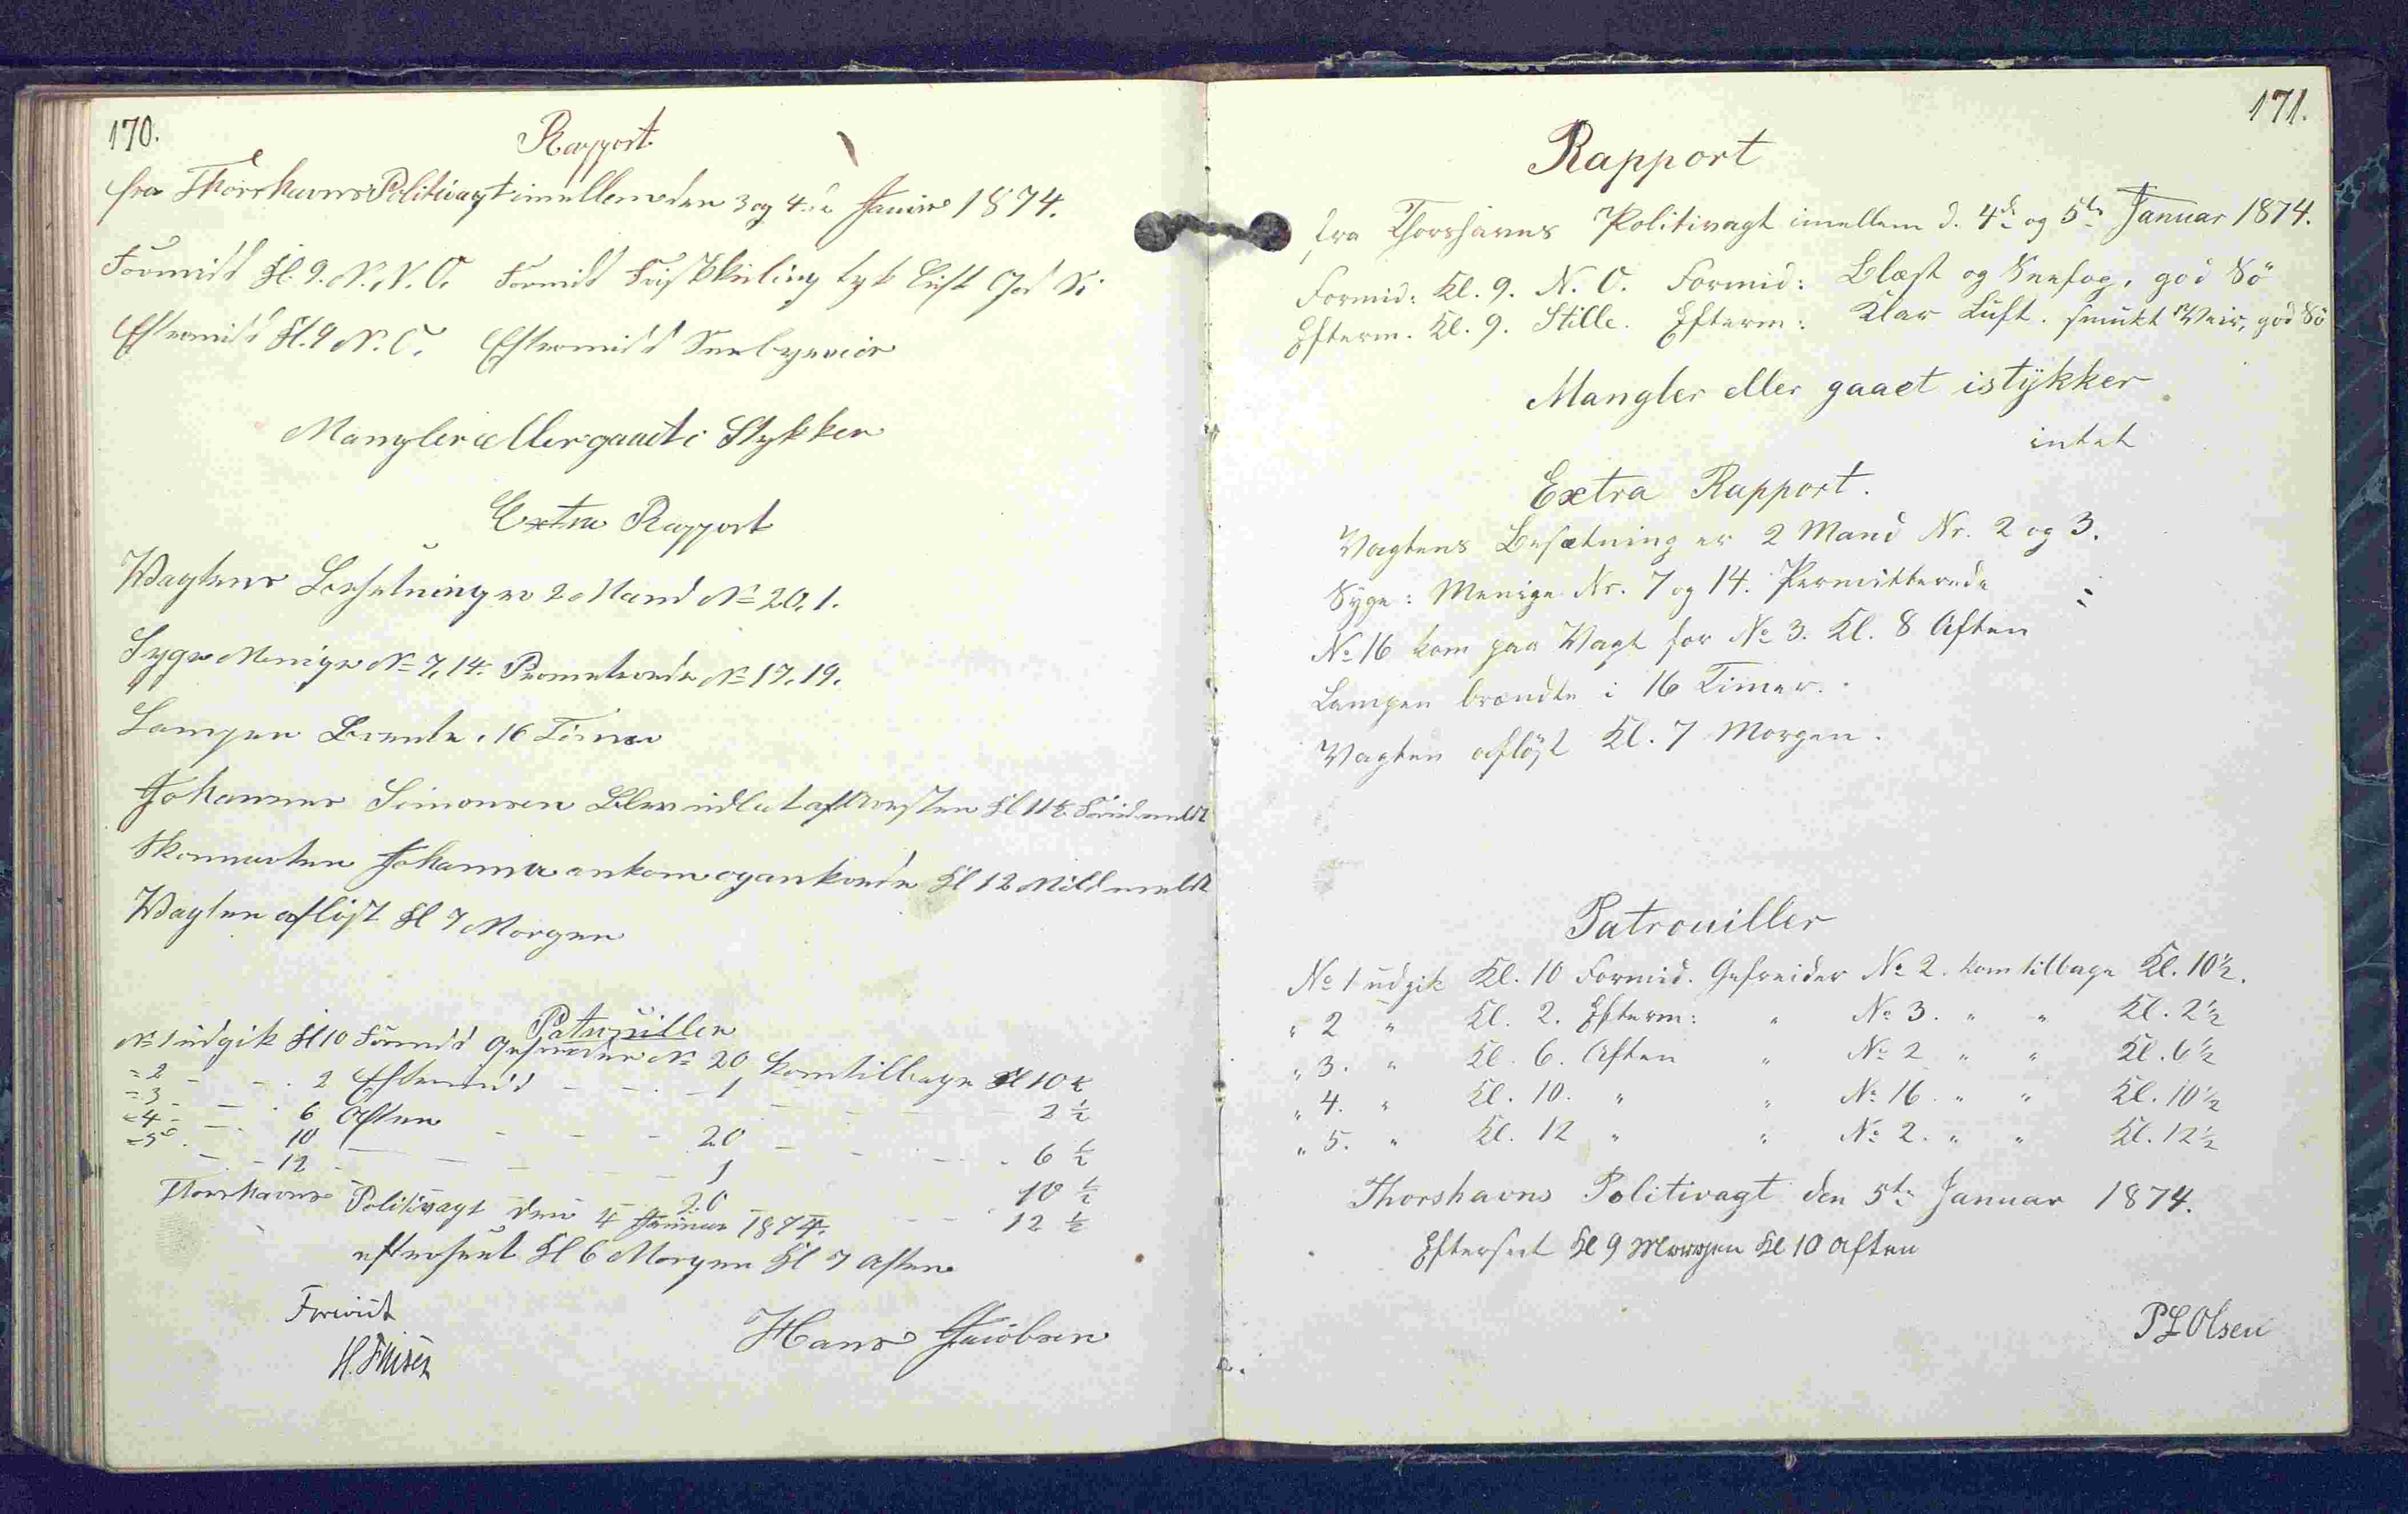 170.
Rapport
fra Thorshavns Politivagt imellem den 3 og 4de Januar 1874.
Formidd Kl. 9. N. N. O. Formidd Friskkuling tyk Luft God Sö
Eftermidd Kl. 9 N. O. Eftermidd Sneebyeveir
Mangler eller gaaet i Stykker
Extra Rapport
Wagtens Besetning er 2 Mand No 20, 1.
Syge Menige No 7, 14. No 17. 19.
Lampen Brente i 16 Timer
Johannes Simonsen Blev udladt af Kl 11½ Formid meldt
Skonnerten Johanna ankom og ankrede Kl 12 Midd meldt
Wagten aflöst Kl 7 Morgen
Patrouiller
No 1 udgik Kl 10 Formidd Gefreider No 20 kom tilbage Kl 10 ½
= 2 - - - 2 Eftermidd - - - 1 - - - 2 ½
= 3 - - - 6 Aften - - - 20 - - - 6 ½
= 4 - - - 10 - - - 1 - - - 10 ½
= 5 - - - 12 - - - 20 - - - 12 ½
Thorshavns Politivagt den 4 Januar 1874.
efterseet Kl 6 Morgen Kl 7 Aften
Foreviist
Hans Jacobsen
171.
Rapport
fra Thorshavns Politivagt imellem d. 4de og 5te Januar 1874.
Formid: Kl. 9. N. O. Formid: Blæst og Sneefog, god Sö
Efterm. Kl. 9. Stille. Efterm: Klar Luft. smukt Veir, god Sö
Mangler eller gaaet istykker
intet
Extra Rapport.
Vagtens Besætning er 2 Mand Nr. 2 og 3.
Syge: Menige Nr. 7 og 14. Permitterede "
No 16 kom paa Vagt for No 3. Kl. 8 Aften
Lampen brændte i 16 Timer.
Vagten aflöst Kl. 7 Morgen.
Patrouiller
No 1 udgik Kl. 10 Formid. Gefreider No 2. kom tilbage Kl. 10½.
" 2 " Kl. 2. Efterm: " No 3. " " Kl. 2½
" 3. " Kl. 6. Aften " No 2 " " Kl. 6½
" 4. " Kl. 10. " " No 16. " " Kl. 10½
" 5. " Kl. 12 " " No 2. " " Kl. 12½
Thorshavns Politivagt den 5te Januar 1874.
Efterseet Kl 9 Morgen Kl 10 Aften
P L Olsen